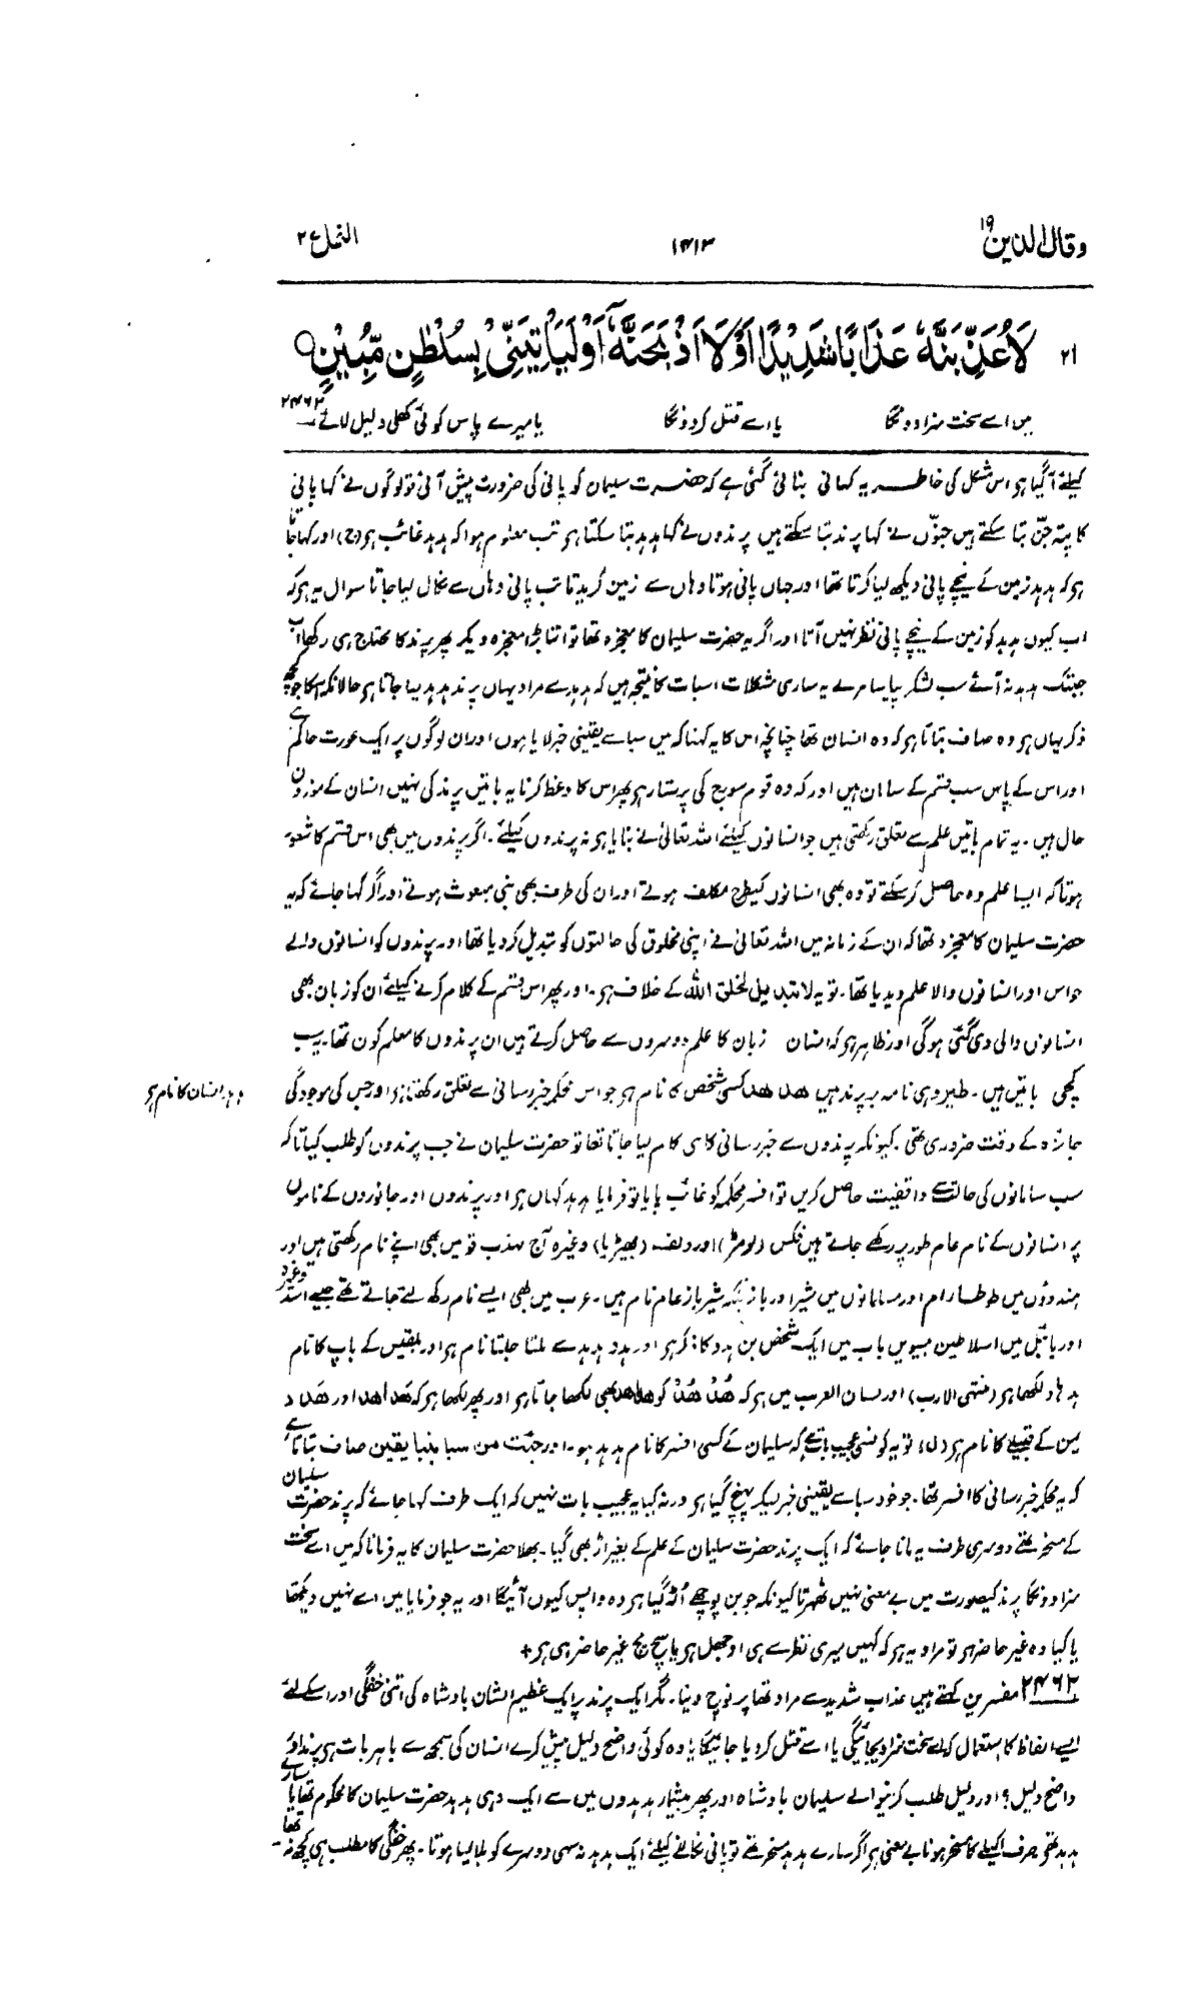 وقال الذین ۱۹
۱۴۱۳
النمل ع ۲
۲۱ لَاُعَذِّبَنَّهٗ عَذَابًا شَدِیْدًا اَوْ لَاَاذْبَحَنَّهٗۤ اَوْ لَیَاْتِیَنِّیْ بِسُلْطٰنٍ مُّبِیْنٍ ○
میں اسے سخت سزا دونگا یا اسے قتل کردونگا یا میرے پاس کوئی کھلی دلیل لائے ۲۴۶۲
کیلئے آگیا ہو اس مشکل کی خاطر یہ کہانی بنائی گئی ہے کہ حضرت سلیمان کو پانی کی ضرورت پیش آئی تو لوگوں نے کہا پانی
کا پتہ جن بتا سکتے ہیں جنوں نے کہا پرند بتا سکتے ہیں پرندوں نے کہا ہدہد بتا سکتا ہو تب معلوم ہوا کہ ہدہد غائب ہو (ج) اور کہا جاتا
ہو کہ ہدہد زمین کے نیچے پانی دیکھ لیا کرتا تھا اور جہاں پانی ہوتا وہاں سے زمین کریدتا تب پانی وہاں سے نکال لیا جاتا سوال یہ ہو کہ
اب کیوں ہدہد کو زمین کے نیچے پانی نظر نہیں آتا اور اگر یہ حضرت سلیمان کا معجزہ تھا تو اتنا بڑا معجزہ دیکر پھر پرند کا محتاج ہی رکھا اب
جبتک ہدہد نہ آئے سب لشکر پیاسا مرے یہ ساری مشکلات اسبات کا نتیجہ ہیں کہ ہدہد سے مراد یہاں پرند ہدہد لیا جاتا ہو حالانکہ اسکا جو کچھ
ذکر یہاں ہو وہ صاف بتاتا ہو کہ وہ انسان تھا چنانچہ اس کا یہ کہنا کہ میں سبا سے یقینی خبر لایا ہوں اور ان لوگوں پر ایک عورت حاکم ہے
اور اس کے پاس سب قسم کے سامان ہیں اور کہ وہ قوم سورج کی پرستار ہو پھر اس کا وعظ کرنا یہ باتیں پرند کی نہیں انسان کے موزون
حال ہیں۔ یہ تمام باتیں علم سے تعلق رکھتی ہیں جو انسانوں کیلئے اللہ تعالیٰ نے بنایا ہو نہ پرندوں کیلئے۔ اگر پرندوں میں بھی اس قسم کا شعور
ہوتا کہ ایسا علم وہ حاصل کر سکتے تو وہ بھی انسانوں کیطرح مکلف ہوتے اور ان کی طرف بھی نبی مبعوث ہوتے اور اگر کہا جائے کہ یہ
حضرت سلیمان کا معجزہ تھا کہ ان کے زمانہ میں اللہ تعالیٰ نے اپنی مخلوق کی حالتوں کو تبدیل کر دیا تھا اور پرندوں کو انسانوں والے
حواس اور انسانوں والا علم دیدیا تھا۔ تو یہ لا تبدیل لخلق اللہ کے خلاف ہو۔ اور پھر اس قسم کے کلام کرنے کیلئے ان کو زبان بھی
انسانوں والی دی گئی ہوگی اور ظاہر ہو کہ انسان زبان کا علم دوسروں سے حاصل کرتے ہیں ان پرندوں کا معلم کون تھا یہ سب
کچی باتیں ہیں۔ طیر وہی نامہ بر پرند ہیں ھدھد کسی شخص کا نام ہو جو اس محکمہ خبررسانی سے تعلق رکھتا ہو اور جس کی موجودگی
ہدہد انسان کا نام ہو
جائزہ کے وقت ضروری تھی۔ کیونکہ پرندوں سے خبر رسانی کا ہی کام لیا جاتا تھا تو حضرت سلیمان نے جب پرندوں کو طلب کیا تا کہ
سب سامانوں کی حالت سے واقفیت حاصل کریں تو افسر محکمہ کو غائب پایا تو فرمایا ہدہد کہاں ہو اور پرندوں اور جانوروں کے ناموں
پر انسانوں کے نام عام طور پر رکھے جاتے ہیں فکس (لومڑ) اور ولف (بھیڑیا) وغیرہ آج مہذب قومیں بھی اپنے نام رکھتی ہیں اور
ہندوؤں میں طوطا رام اور مسلمانوں میں شیر اور باز بلکہ شیر باز عام نام ہیں۔ عرب میں بھی ایسے نام رکھ لئے جاتے تھے جیسے اسد وغیرہ
اور بائبل میں ا سلاطین بیسویں باب میں ایک شخص بن ہدد کا ذکر ہو اور ہدد ہدہد سے ملتا جلتا نام ہو اور بلقیس کے باپ کا نام
ہدہاد لکھا ہو (منتہی الارب) اور لسان العرب میں ہو کہ ھُدْھُدْ کو ھداھد بھی لکھا جاتا ہو اور پھر لکھا ہو کہ ھَداھد اور ھَدَاد
یمن کے قبیلے کا نام ہو (ل) تو یہ کونسی عجیب بات ہے کہ سلیمان کے کسی افسر کا نام ہدہد ہو۔ اور جئت من سبا بنبا یقین صاف بتاتا ہے
کہ یہ محکمہ خبررسانی کا افسر تھا۔ جو خود سبا سے یقینی خبر لیکر پہنچ گیا ہو ورنہ کیا یہ عجیب بات نہیں کہ ایک طرف کہا جائے کہ پرند حضرت سلیمان
کے مسخر تھے دوسری طرف یہ مانا جائے کہ ایک پرند حضرت سلیمان کے علم کے بغیر اڑ بھی گیا۔ بھلا حضرت سلیمان کا یہ فرمانا کہ میں اسے سخت
سزا دونگا پرند کیصورت میں بے معنی نہیں ٹھہرتا کیونکہ جو بن پوچھے اُڑ گیا ہو وہ واپس کیوں آئیگا اور یہ جو فرمایا میں اسے نہیں دیکھتا
یا کیا وہ غیر حاضر ہو تو مراد یہ ہو کہ کہیں میری نظر سے ہی اوجھل ہو یا سچ مچ غیر حاضر ہی ہو +
۲۴۶۲ مفسرین کہتے ہیں عذاب شدید سے مراد تھا پر نوچ دینا۔ مگر ایک پرند پر ایک عظیم الشان بادشاہ کی اتنی خفگی اور اسکے لئے
ایسے الفاظ کا استعمال کہ اسے سخت سزا دیجائیگی یا اسے قتل کر دیا جائیگا یا وہ کوئی واضح دلیل پیش کرے انسان کی سمجھ سے باہر بات ہو پرند اور
واضح دلیل؟ اور دلیل طلب کرنیوالے سلیمان بادشاہ اور پھر بیشمار ہدہدوں میں سے ایک وہی ہدہد حضرت سلیمان کا محکوم تھا یا سارے
ہدہد تھے صرف اکیلے کا مسخر ہونا بے معنی ہو اگر سارے ہدہد مسخر تھے تو پانی نکالنے کیلئے ایک ہدہد نہ سہی دوسرے کو بلا لیا ہوتا۔ پھر خفگی کا مطلب ہی کچھ نہ تھا۔